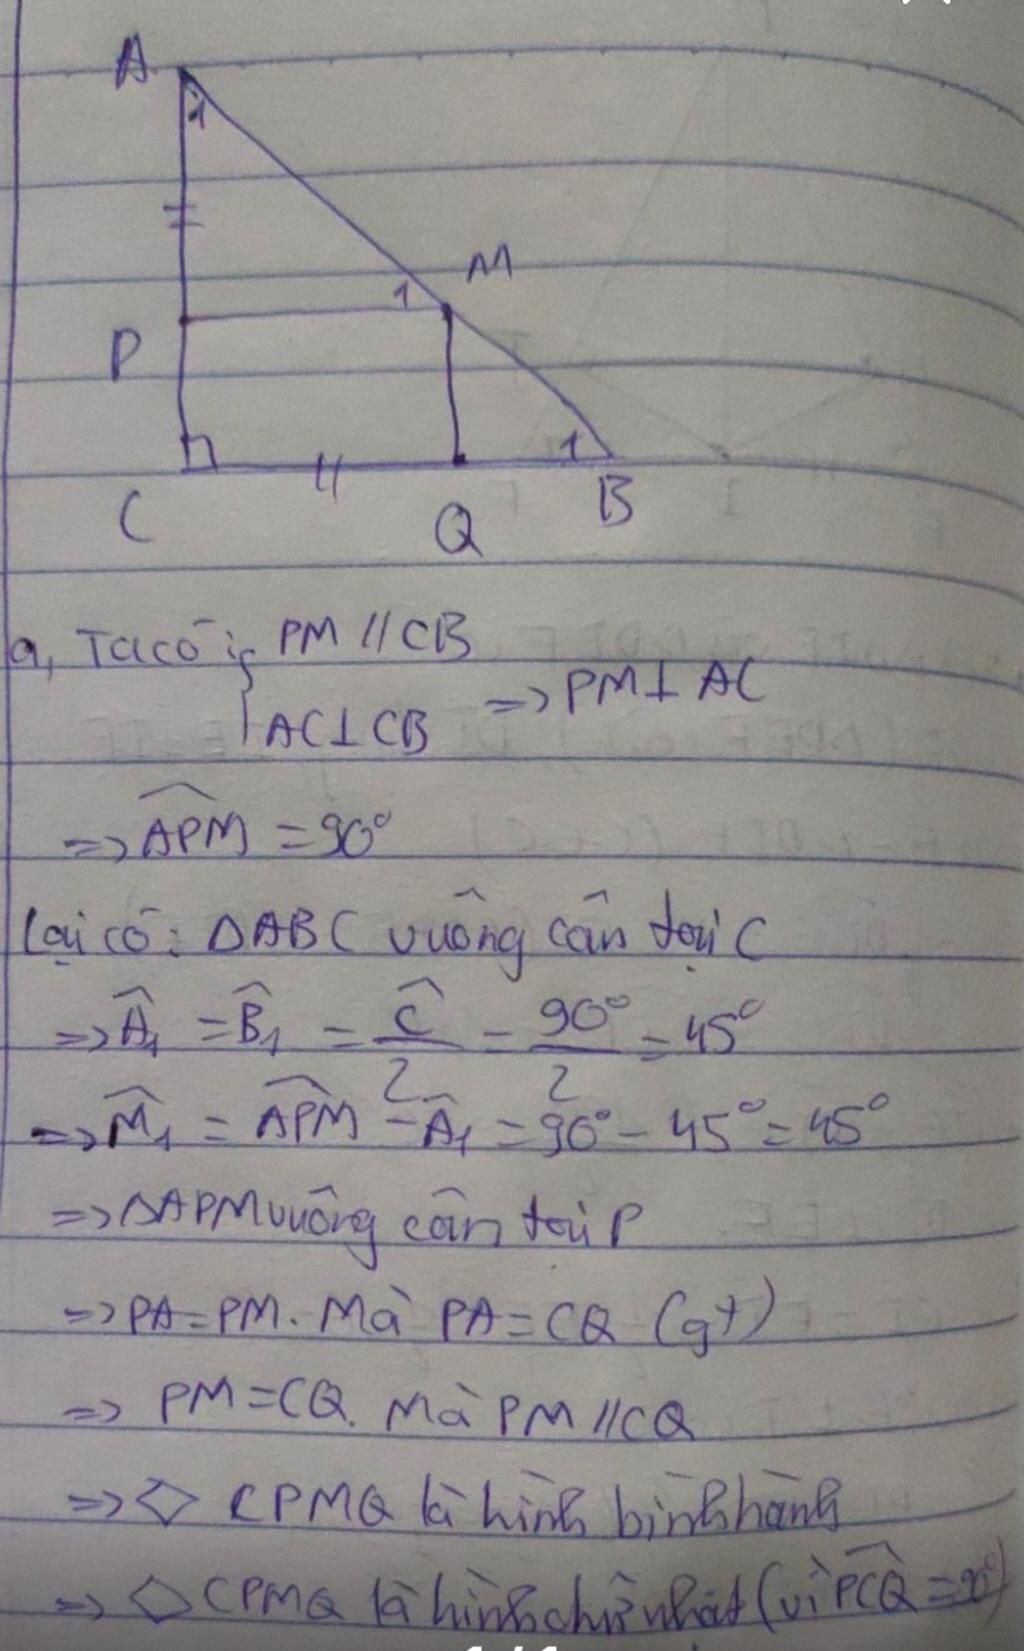 A
1
M
1
P
1
C
Q
B
a, Ta có: { PM // CB
AC ⊥ CB => PM ⊥ AC
=> \widehat{APM} = 90°
Lại có: ΔABC vuông cân tại C
=> \widehat{A}₁ = \widehat{B}₁ = \frac{\widehat{C}}{2} = \frac{90°}{2} = 45°
=> \widehat{M}₁ = \widehat{APM} - \widehat{A}₁ = 90° - 45° = 45°
=> ΔAPM vuông cân tại P
=> PA = PM. Mà PA = CQ (gt)
=> PM = CQ. Mà PM // CQ
=> ◇ CPMQ là hình bình hành
=> ◇ CPMQ là hình chữ nhật (vì \widehat{PCQ} = 90°)